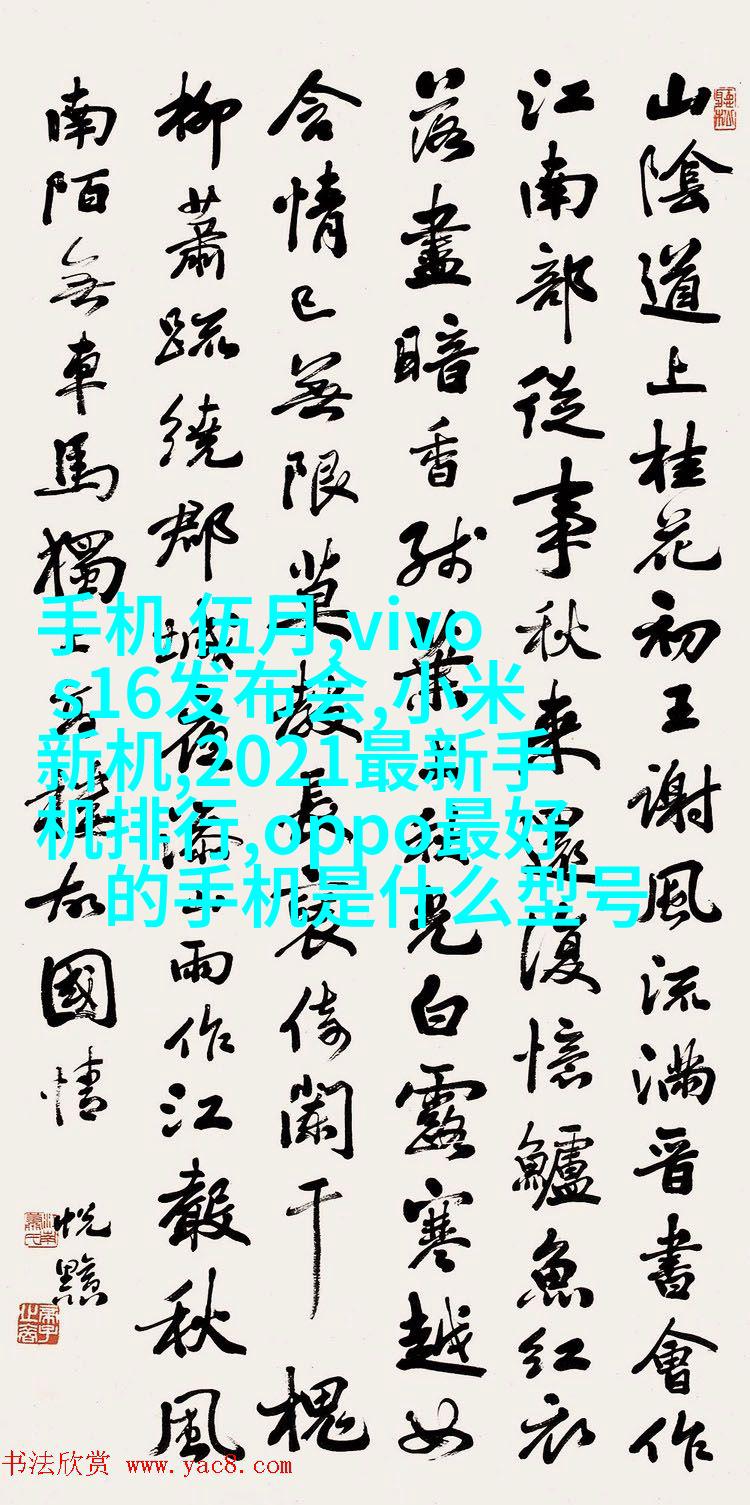 山陰道上桂花初王謝風流滿晉書會作
江南部從事秋來還復憶鱸魚紅衣
落盡暗香殘葉上秋光白露寒越女
含情已無限莫教長褎倚闌干槐
柳蕭疏繞郡城夜添山雨作江聲秋風
南陌無車馬獨上高樓故國情
手机,伍月,vivo
s16发布会,小米
新机,2021最新手
机排行,oppo最好
的手机是什么型号
书法欣赏 www.yac8.com